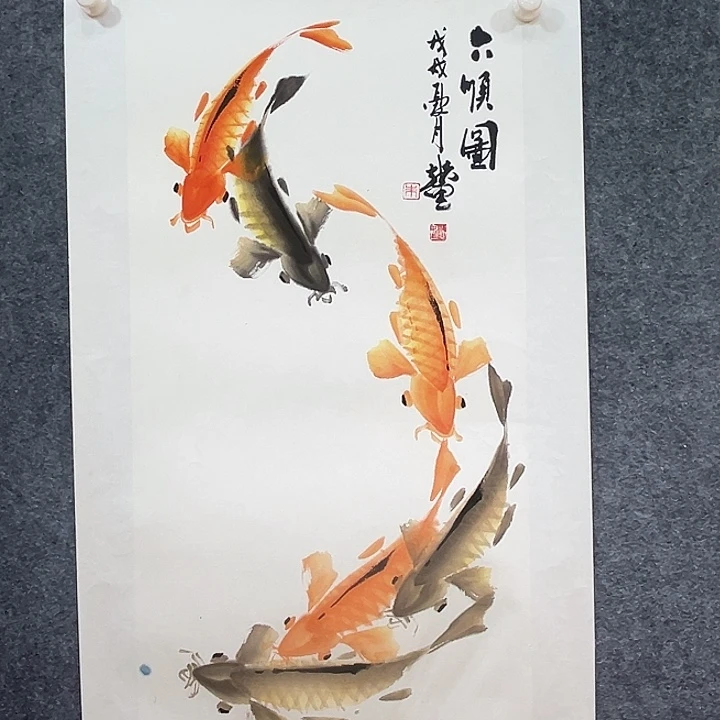 六順圖
戊戌夏月